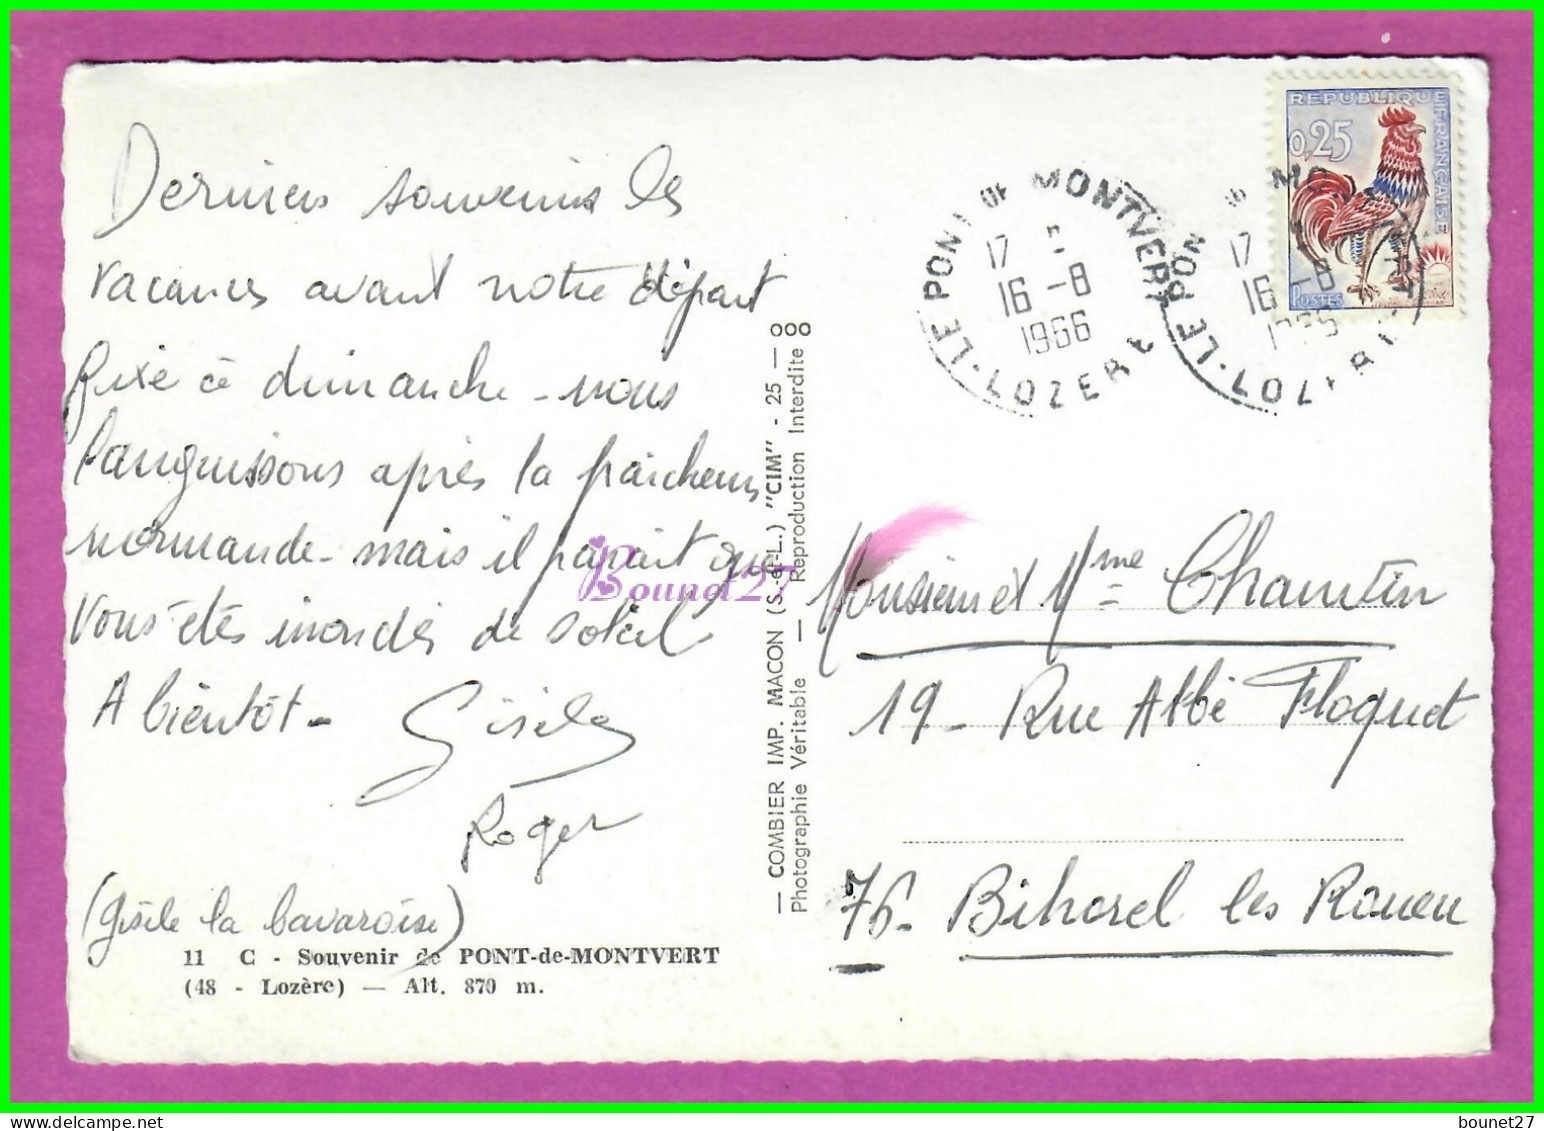 Derniers souvenirs des
vacances avant notre départ
fixé à dimanche - nous
languissons après la fraicheur
normande - mais il parait que
vous êtes inondés de soleil
A bientôt -
Gisèle
Roger
(Gisèle la bavaroise)
11 C - Souvenir de PONT-de-MONTVERT
(48 - Lozère) — Alt. 870 m.
— COMBIER IMP. MACON (S.-et-L.) "CIM" - 25 —
Photographie Véritable — Reproduction Interdite
Bounet27
LE PONT DE MONTVERT
17
16 -8
1966
LOZERE
17
16 -8
REPUBLIQUE FRANÇAISE
0,25
POSTES
Monsieur et Mme
19 - Rue Abbé Floquet
76 - Bihorel les Rouen
bounet27